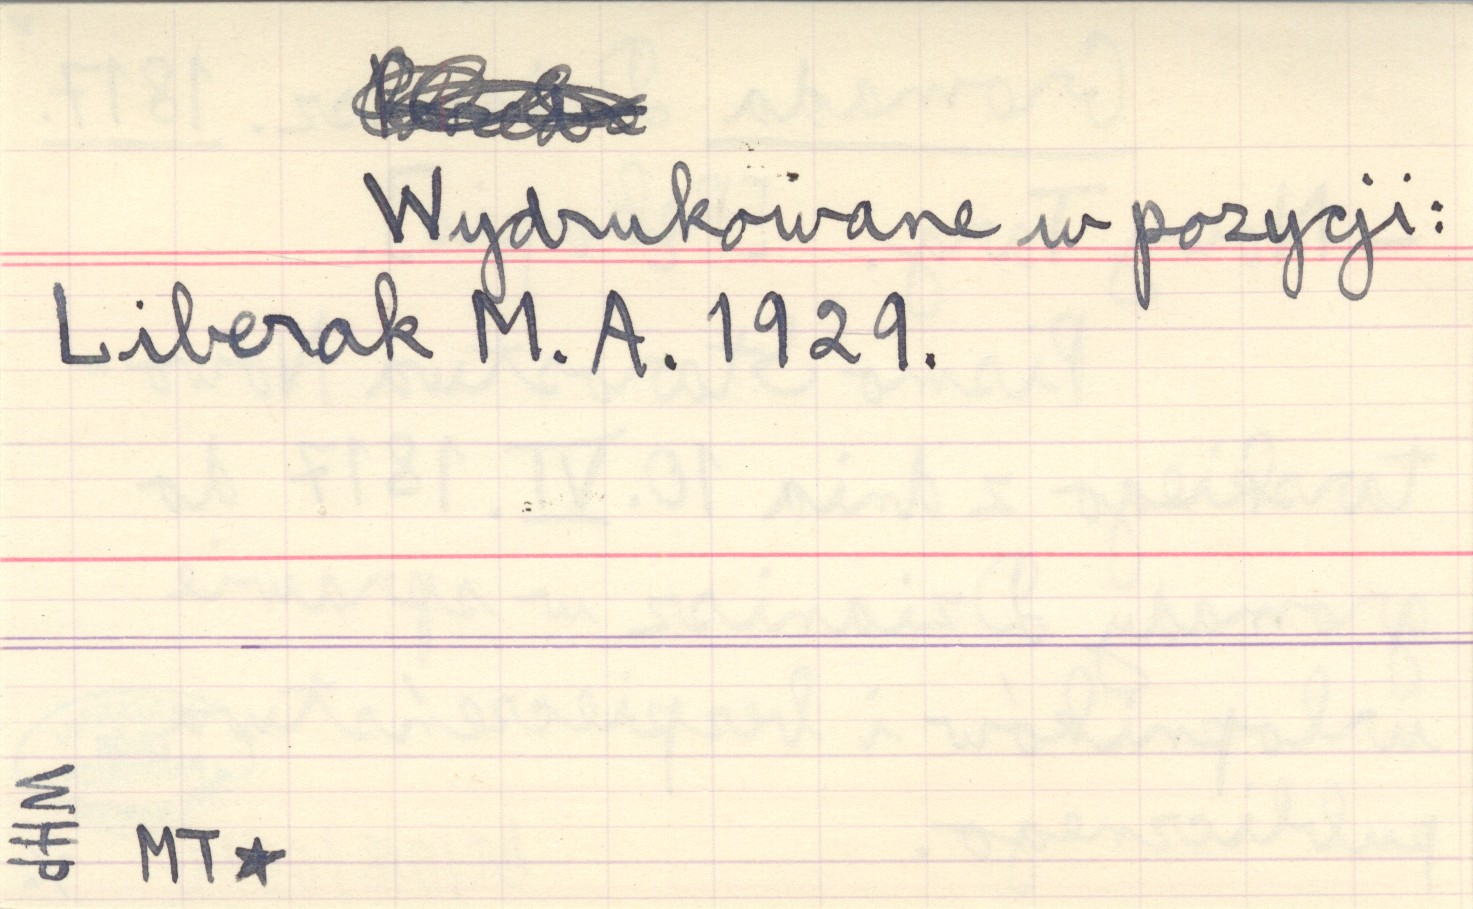 Wydrukowane w pozycji:
Liberak M. A. 1929.
WHP
MT★